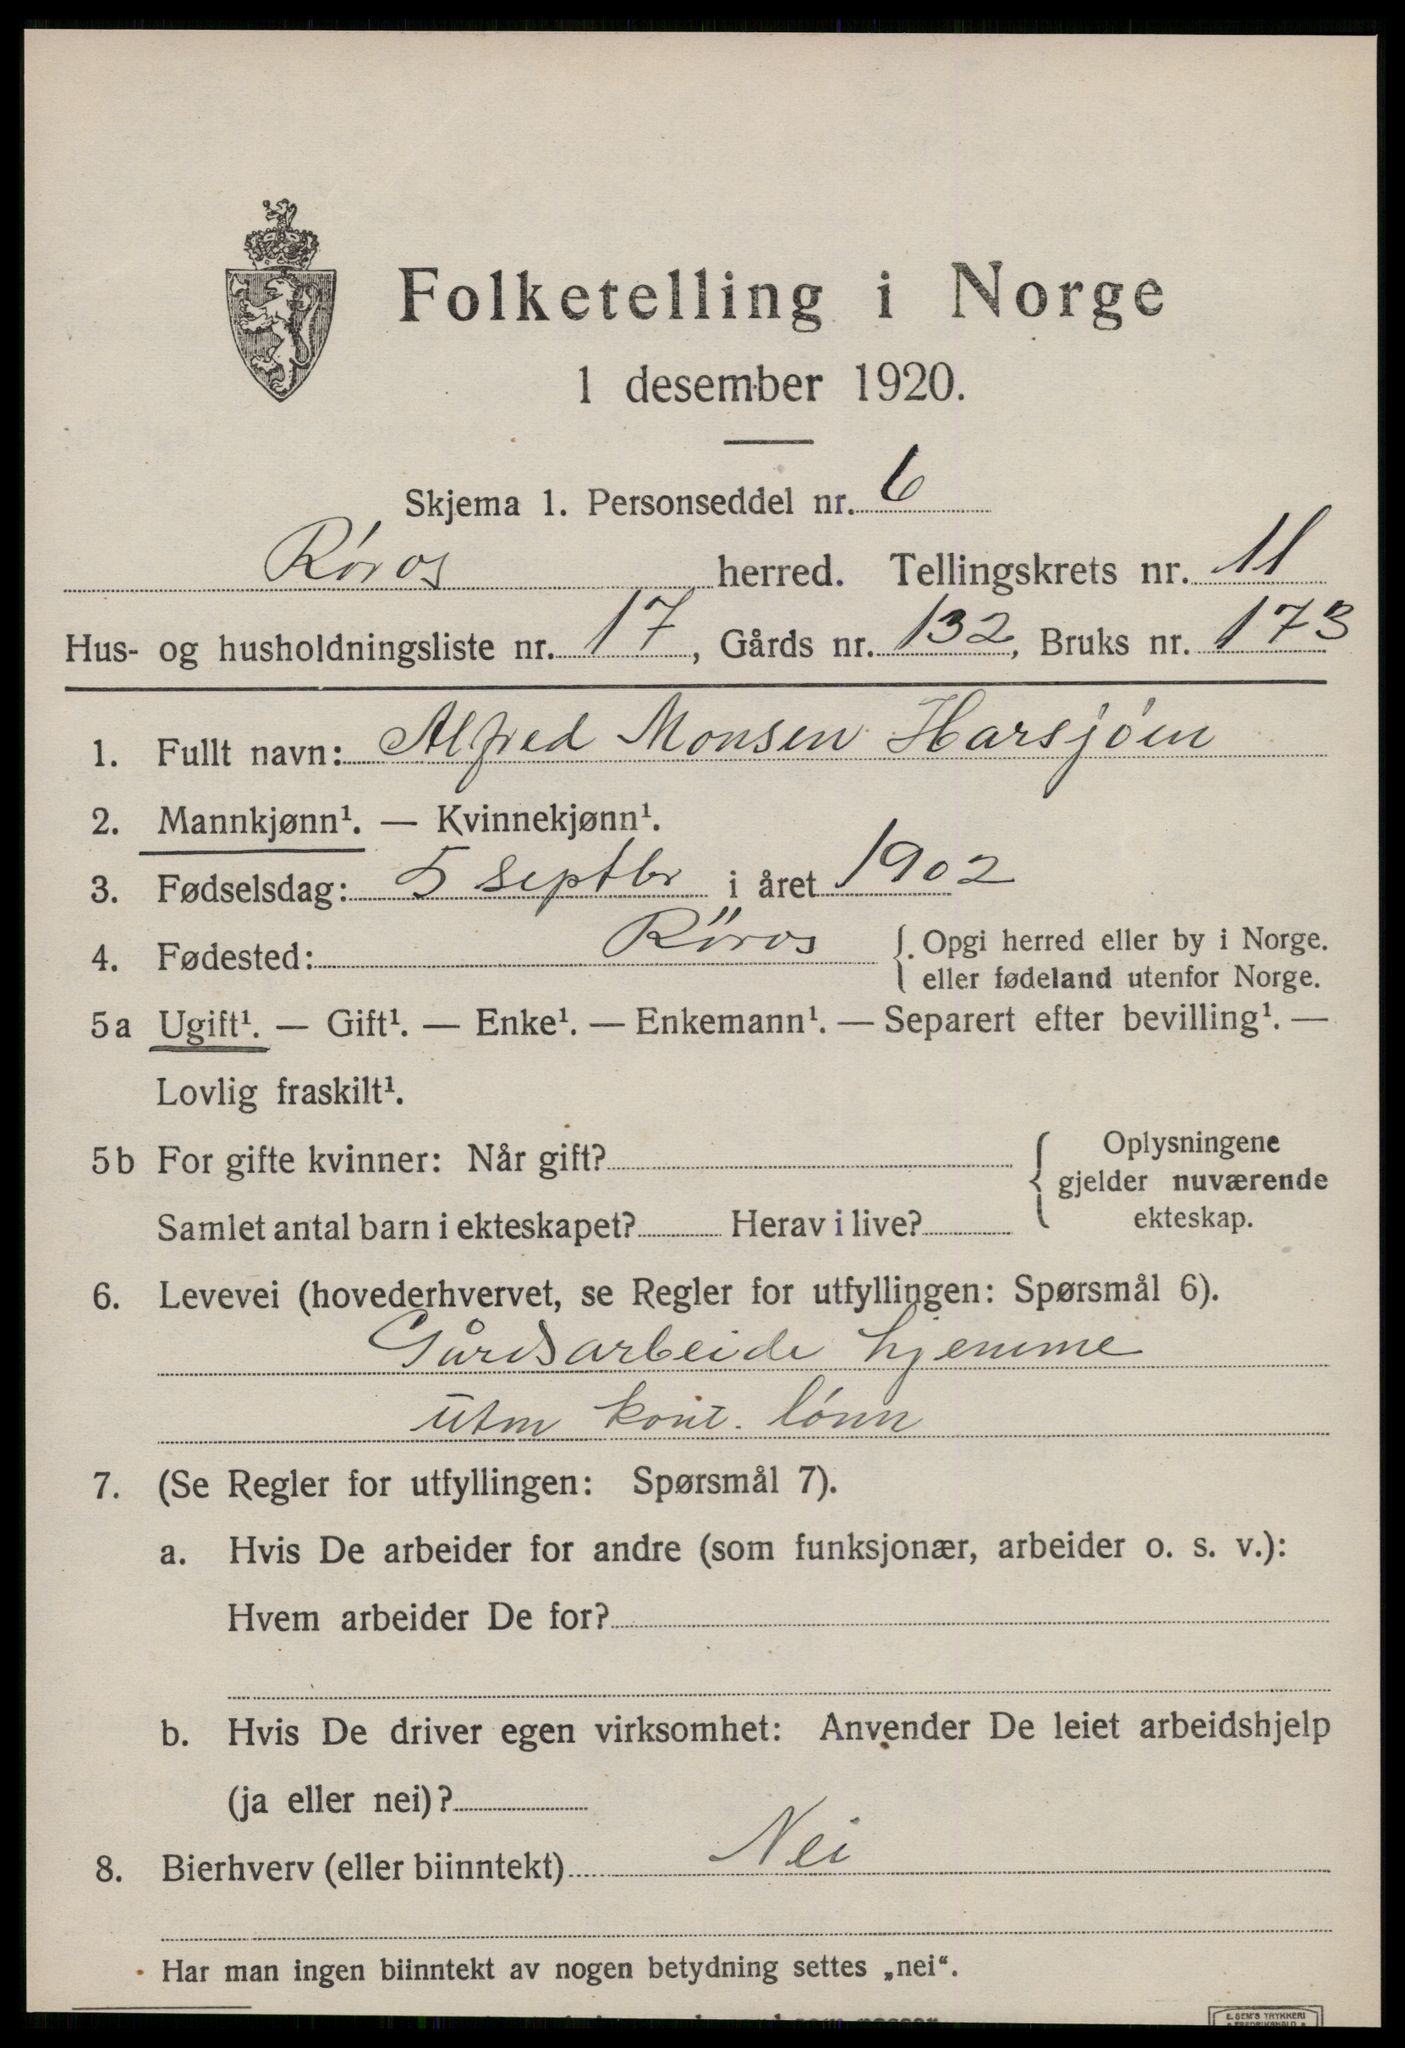 Folketelling i Norge
1 desember 1920.
Skjema 1. Personseddel nr. 6
Røros herred. Tellingskrets nr. 11
Hus- og husholdningsliste nr. 17, Gårds nr. 132, Bruks nr. 173
1. Fullt navn: Alfred Monsen Harsjøen
2. Mannkjønn¹. — Kvinnekjønn¹.
3. Fødselsdag: 5 septbr i året 1902
4. Fødested: Røros { Opgi herred eller by i Norge.
eller fødeland utenfor Norge.
5a Ugift¹. — Gift¹. — Enke¹. — Enkemann¹. — Separert efter bevilling¹. —
Lovlig fraskilt¹.
5b For gifte kvinner: Når gift? { Oplysningene
gjelder nuværende
ekteskap.
Samlet antal barn i ekteskapet? Herav i live?
6. Levevei (hovederhvervet, se Regler for utfyllingen: Spørsmål 6).
Gårdsarbeide hjemme
uten kont. lønn
7. (Se Regler for utfyllingen: Spørsmål 7).
a. Hvis De arbeider for andre (som funksjonær, arbeider o. s. v.):
Hvem arbeider De for?
b. Hvis De driver egen virksomhet: Anvender De leiet arbeidshjelp
(ja eller nei)?
8. Bierhverv (eller biinntekt) Nei
Har man ingen biinntekt av nogen betydning settes „nei“.
E. SEM'S TRYKKERI
FREDRIKSHALD